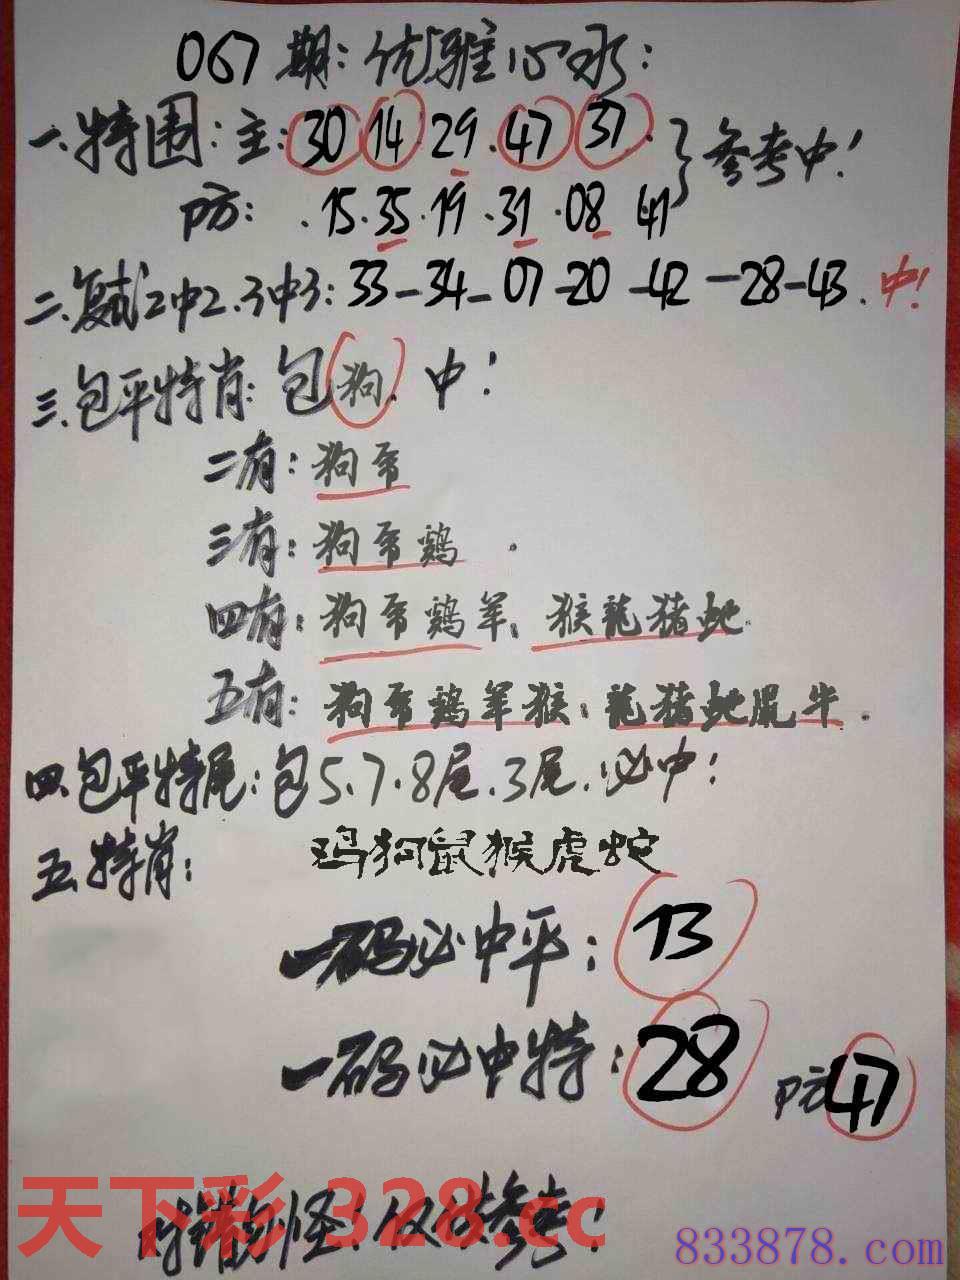 067期:优雅心水:
一.特围:主:30 14 29.47 37. 参考中!
防:.15.35.19.31.08 41
二.复式2中2.3中3:33-34-07-20-42-28-43.中!
三.包平特肖:包狗.中!
二有:狗帝
三有:狗帝鸡.
四有:狗帝鸡羊,猴龍猪蛇.
五有:狗帝鸡羊猴,龍猪蛇鼠牛.
四.包平特尾:包5.7.8尾.3尾.必中!
五.特肖:鸡狗鼠猴虎蛇
一码必中平:13
一码必中特:28 防47
天下彩 328.cc
错勿怪!仅供参考!
833878.com